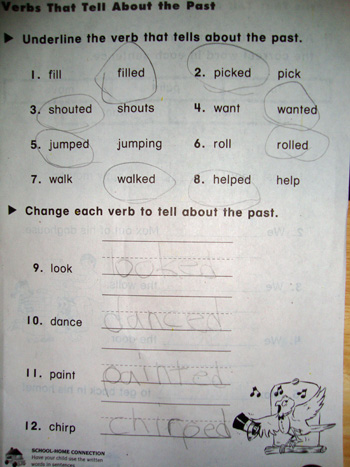 Verbs That Tell About the Past
▶ Underline the verb that tells about the past.
1. fill filled 2. picked pick
3. shouted shouts 4. want wanted
5. jumped jumping 6. roll rolled
7. walk walked 8. helped help
▶ Change each verb to tell about the past.
9. look looked
10. dance danced
11. paint painted
12. chirp chirped
SCHOOL-HOME CONNECTION
Have your child use the written
words in sentences